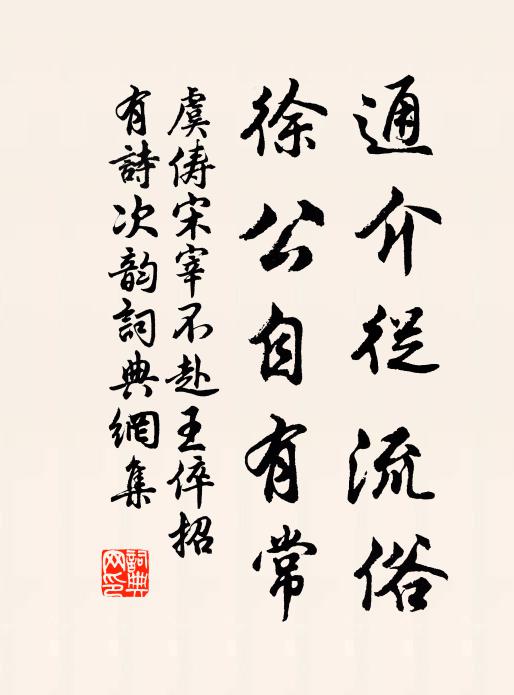 通介從流俗
徐公自有常
虞儔宋宰不赴王倅招
有詩次韵詞典網集
詞典
网印